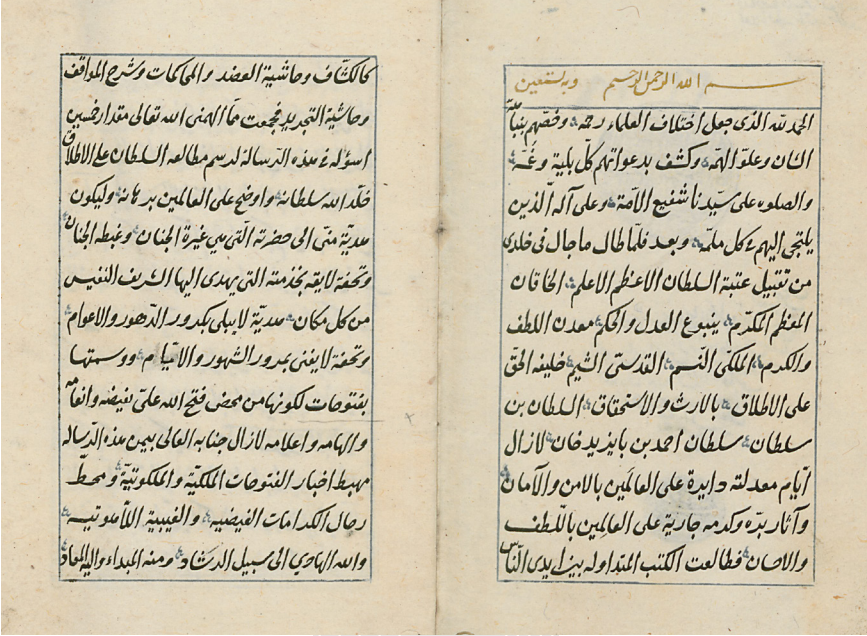 بسم الله الرحمن الرحيم وبه نستعين
الحمد لله الذى جعل اختلاف العلماء رحمه وخصهم بنباهة
الشان وعلو الهمه وكشف بدعواتهم كل بلية وغمة
والصلوه على سيدنا شفيع الامة وعلى آله الذين
يلتجى اليهم فى كل ملمة وبعد فلما طال ما جال فى خلدى
من تقبيل عتبة السلطان الاعظم الاعلم الخاقان
المعظم المكرم ينبوع العدل والحكم معدن اللطف
والكرم الملكى النسم القدسى الشيم خليفه الحق
على الاطلاق بالارث والاستحقاق السلطان بن
سلطان سلطان احمد بن بايزيد خان لازال
ايام معدلته دايرة على العالمين بالامن والآمان
وآثار بره وكرمه جارية على العالمين باللطف
والاحسان فطالعت الكتب المتداوله بين ايدى الناس
كالكشاف وحاشية العضد والمحاكمات وشرح المواقف
وحاشية التجريد فجمعت مما الهمنى الله تعالى مقدار خمسين
اسؤله فى هذه الرسالة لرسم مطالعه السلطان على الاطلاق
خلد الله سلطانه واوضح على العالمين برهانه وليكون
هدية منى الى حضرته التى هي غيرة الجنان وغبطه الجنان
وتحفة لايقه بخدمته التى يهدى اليها الشريف النفيس
من كل مكان هدية لا يبلى بكرور الدهور والاعوام
وتحفة لا يفنى بمرور الشهور والايام ووسمتها
بفتوحات لكونها من محض فتح الله على بفيضه وانعامه
والهامه واعلامه لازال جنابه العالى بيمن هذه الرساله
مهبط اخبار الفتوحات الملكية والملكوتية ومحط
رحال الكرامات الفيضيه والغيبية اللاهوتيه
والله الهادي الى سبيل الرشاد ومنه المبداء واليه المعاد